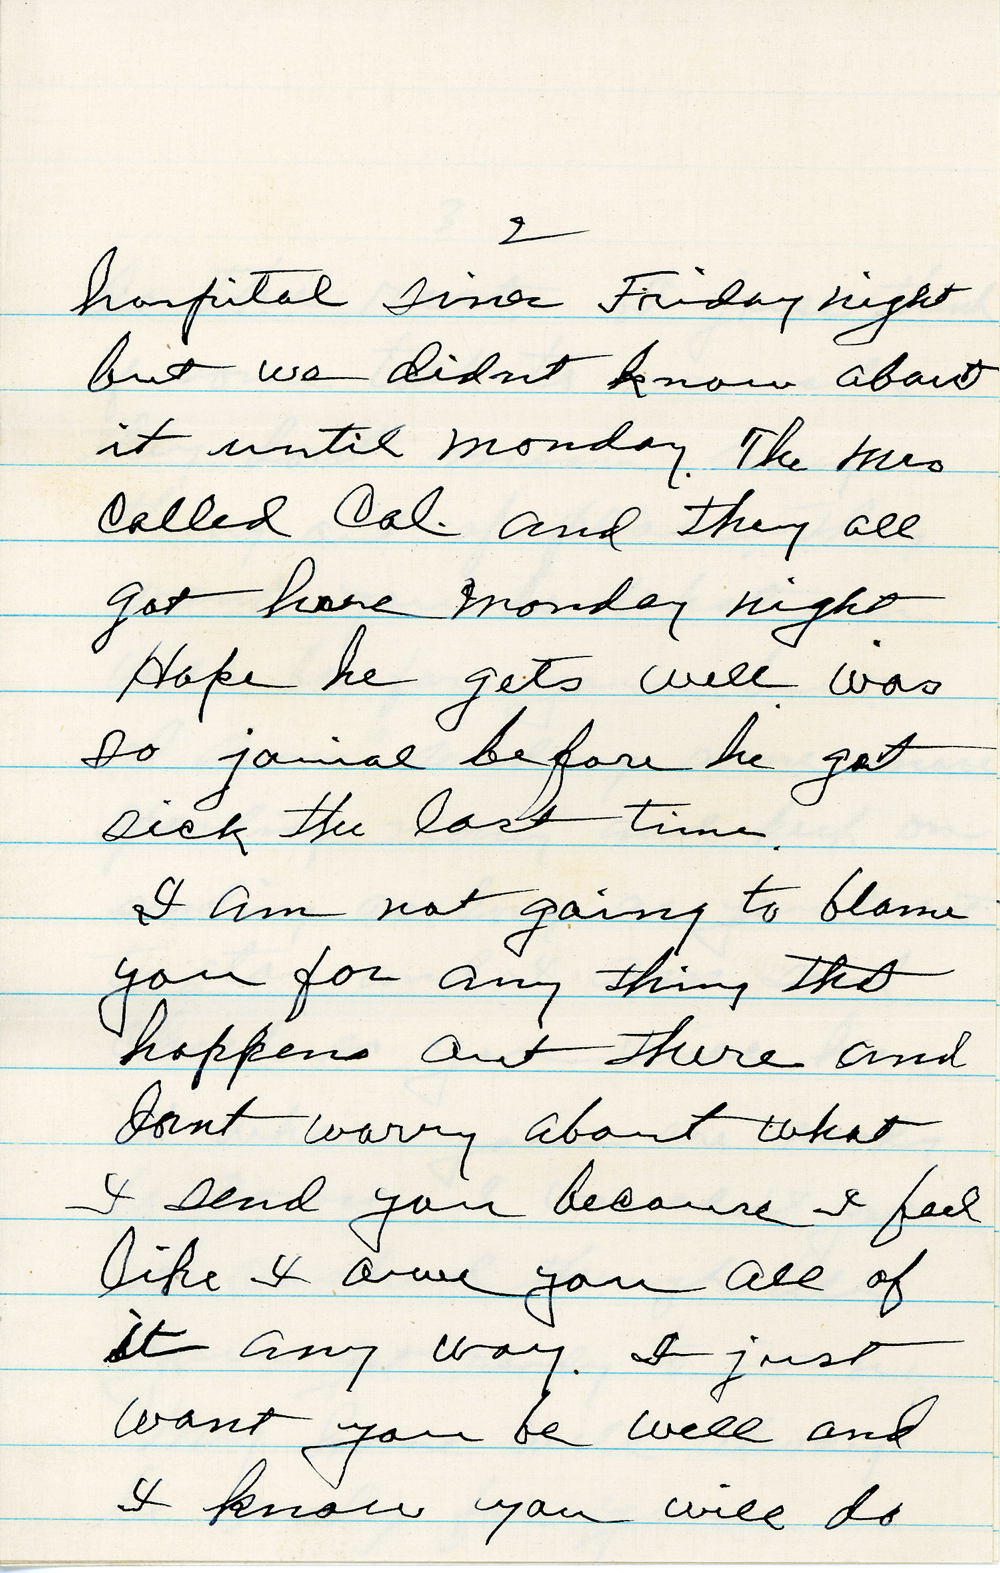 2
hospital since Friday night
but we didnt know about
it until Monday. The Mrs
called Cal. and they all
got here Monday night
Hope he gets well. was
so jovial before he got
sick the last time.
I am not going to blame
you for any thing that
happens out there and
dont worry about what
I send you because I feel
like I owe you all of
it any way. I just
want you be well and
I know you will do